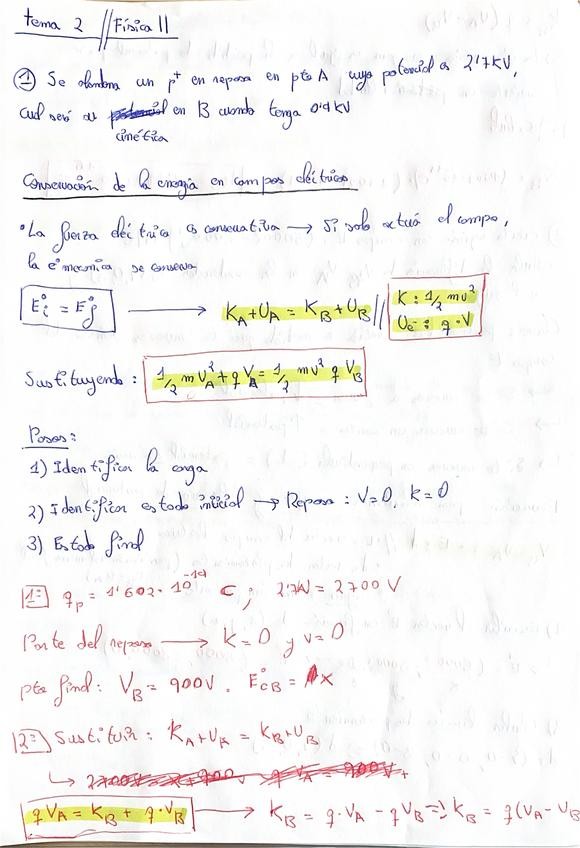 tema 2 // Física II
① Se abandona un p⁺ en reposo en pto A cuyo potencial es 2'7 kV,
cual será su en B cuando tenga 0'9 kV
cinética
Conservación de la energía en campos eléctricos
• La fuerza eléctrica es conservativa → Si solo actúa el campo,
la e° mecanica se conserva
E°i = E°f → K_A + U_A = K_B + U_B // K: 1/2 mv²
U_e-: q · V
Sustituyendo: 1/2 m V_A² + q V_A = 1/2 mv² q V_B
Pasos:
1) Identificar la carga
2) Identificar estado inicial → Reposo: V=0 K=0
3) Estado final
1: q_p = 1'602 · 10⁻¹⁹ C ; 2'7kV = 2700 V
Parte del reposo → K = 0 y v = 0
pto final: V_B = 900V. E°_CB = x
2: Sustituir: K_A + U_A = K_B + U_B
q V_A = K_B + q · V_B → K_B = q · V_A - q V_B => K_B = q (V_A - V_B